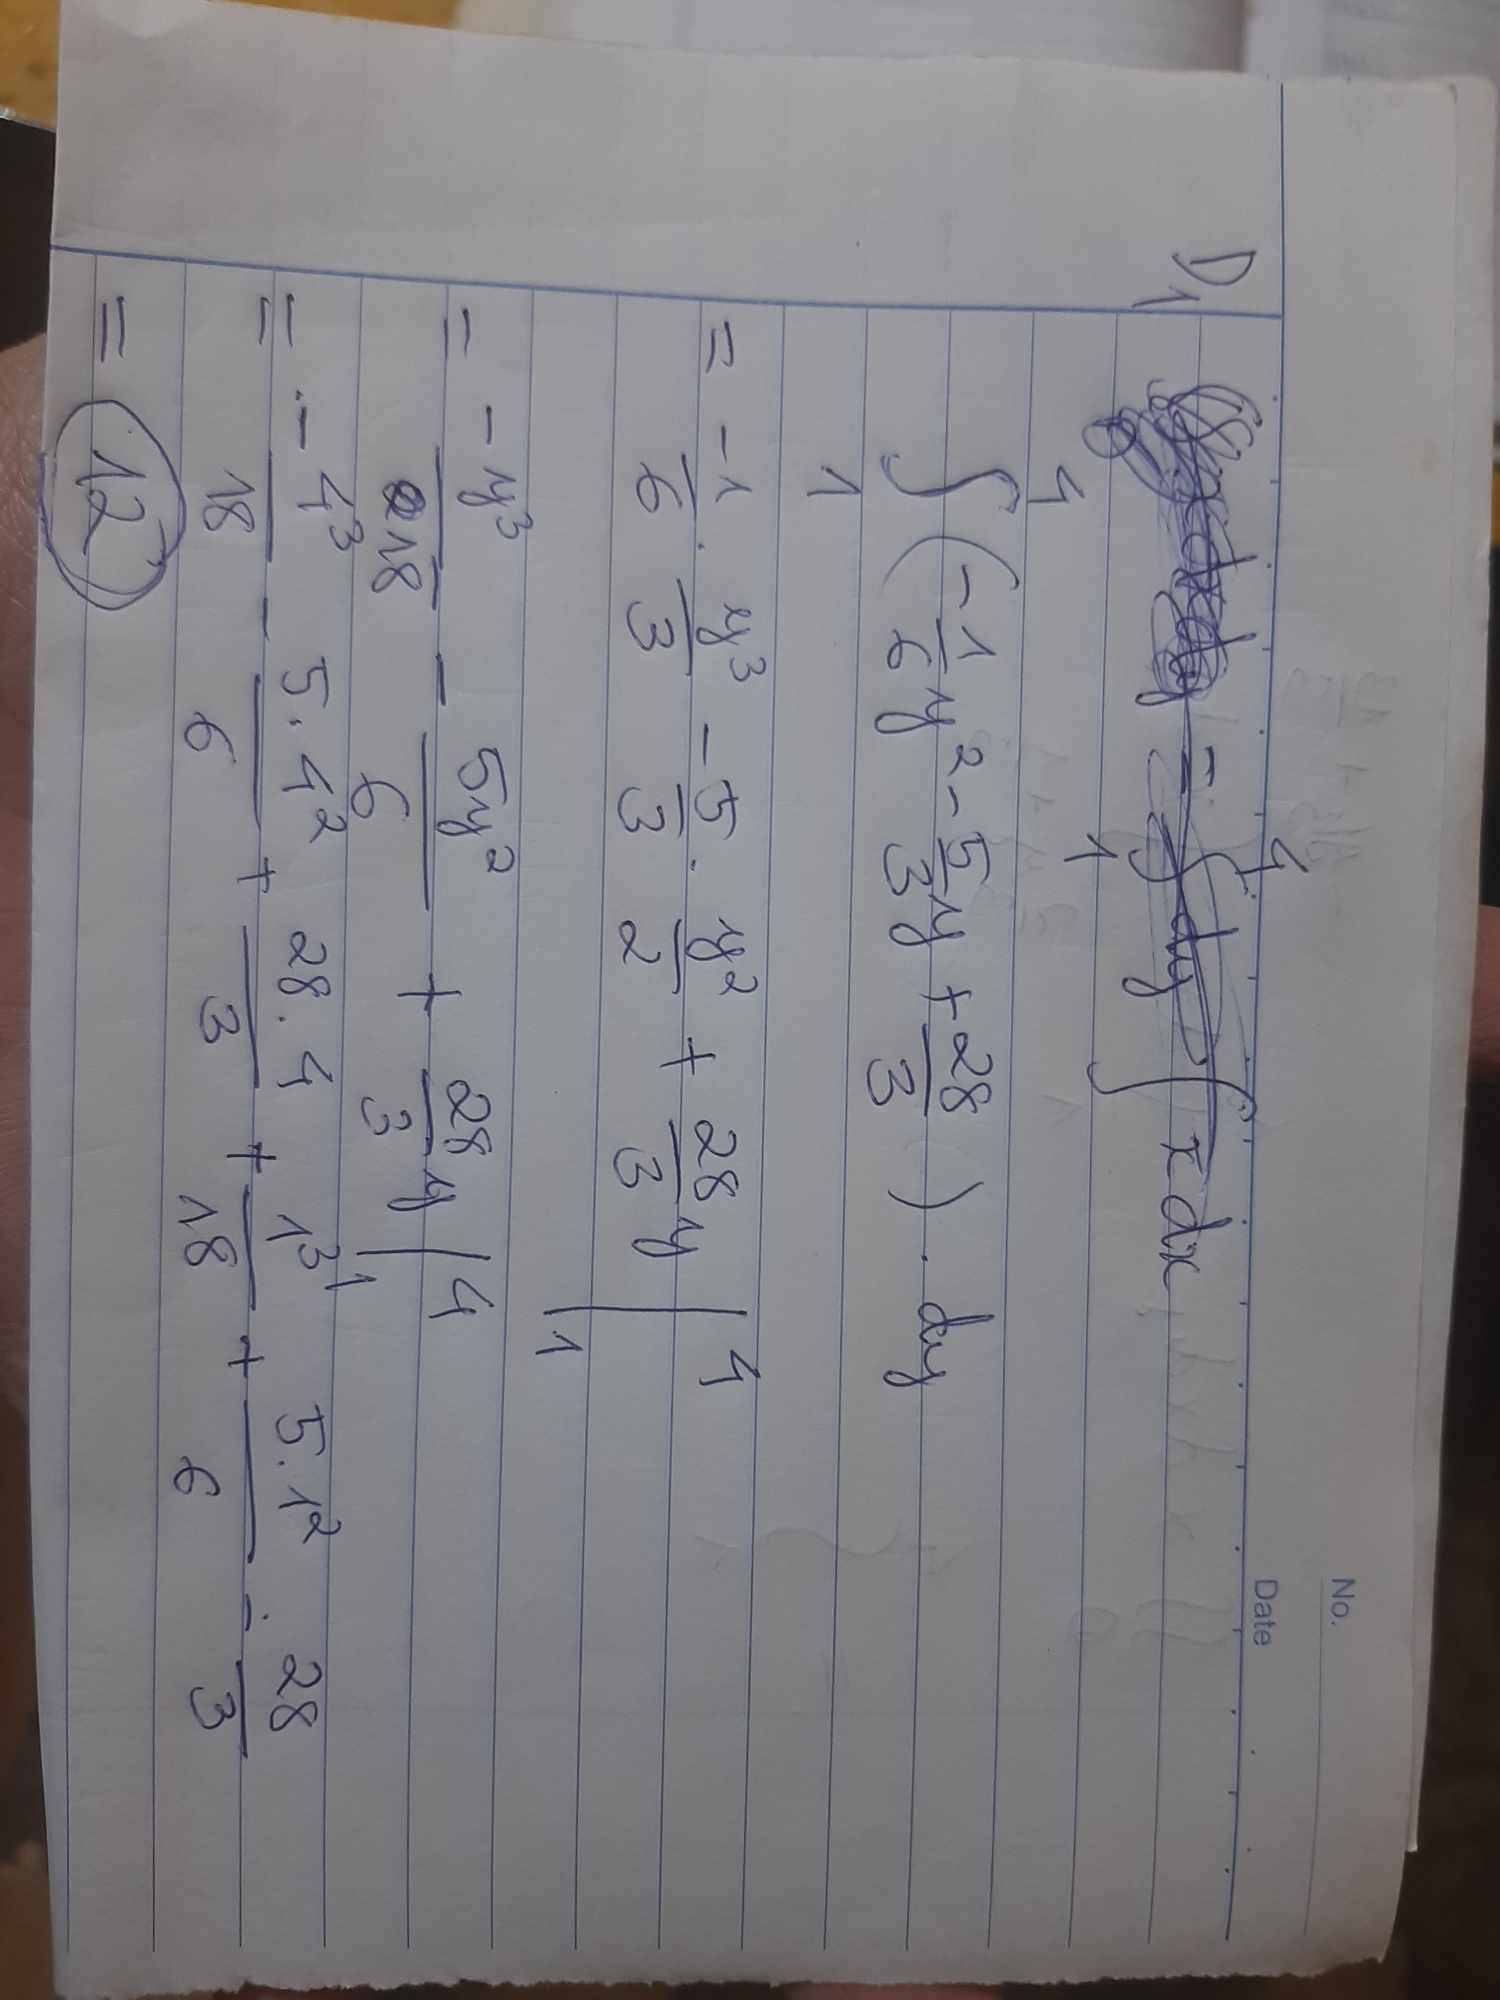 No.
Date
D₁ ∬ x dx dy = ∫₁⁴ dy ∫ x dx
∫₁⁴ (-1/6 y² - 5/3 y + 28/3) . dy
= -1/6 . y³/3 - 5/3 . y²/2 + 28/3 y |₁⁴
= -y³/18 - 5y²/6 + 28/3 y |₁⁴
= - 4³/18 - 5.4²/6 + 28.4/3 + 1³/18 + 5.1²/6 - 28/3
= 12